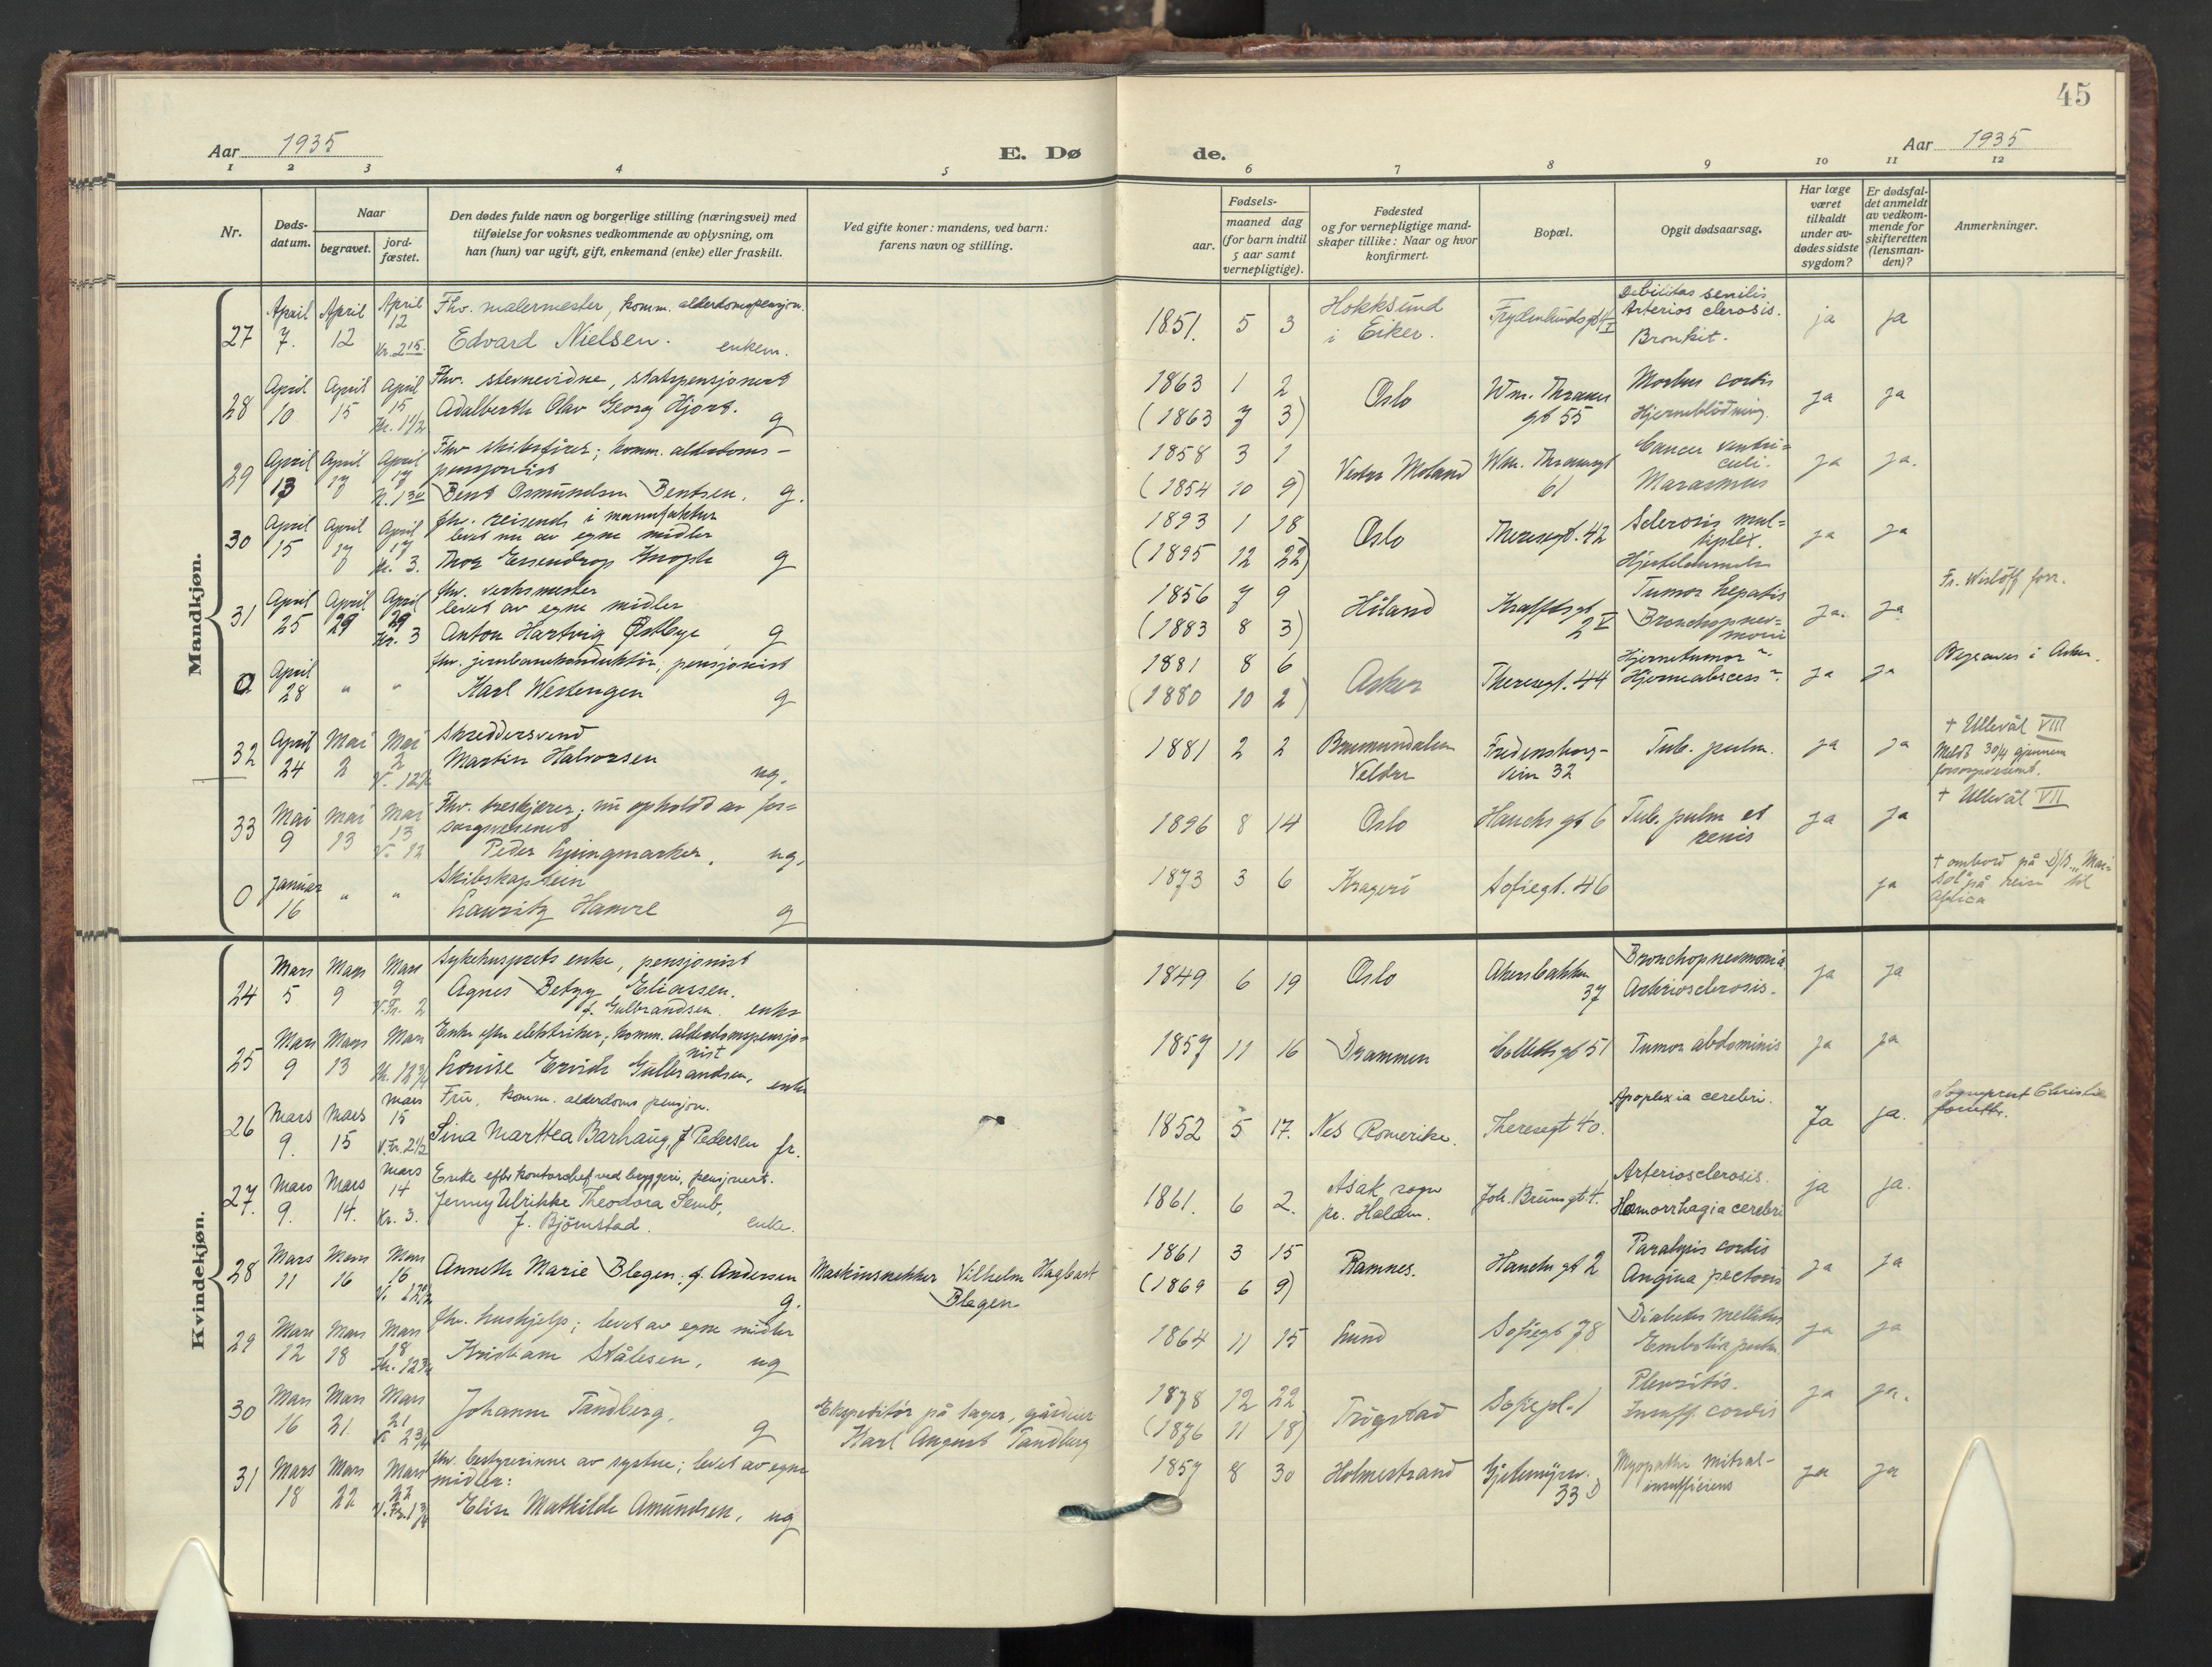 45
Aar 1935
E. Dø de.
Aar 1935
1 2 3 4 5 6 7 8 9 10 11 12
Nr.
Døds-
datum.
Naar
begravet.
jord-
fæstet.
Den dødes fulde navn og borgerlige stilling (næringsvei) med
tilføielse for voksnes vedkommende av oplysning, om
han (hun) var ugift, gift, enkemand (enke) eller fraskilt.
Ved gifte koner: mandens, ved barn:
farens navn og stilling.
Fødsels-
aar.
maaned dag
(for barn indtil
5 aar samt
vernepligtige).
Fødested
og for vernepligtige mand-
skaper tillike: Naar og hvor
konfirmert.
Bopæl.
Opgit dødsaarsag.
Har læge
været
tilkaldt
under av-
dødes sidste
sygdom?
Er dødsfal-
det anmeldt
av vedkom-
mende for
skifteretten
(lensman-
den)?
Anmerkninger.
Mandkjøn.
27 April 7. April 12 April 12 Kr. 2 15
Fhv. malermester, komm. alderdomspensjon.
Edvard Nielsen. enkem.
1851. 5 3
Hokksund
i Eiker.
Debilitas senilis
Arterios clerosis.
Bronkit.
ja ja
28 April 10 April 15 April 15 Kr. 1 1/2
Fhv. stevnevidne, statspensjonert
Adalberth Olav Georg Hjort. g
1863 1 2
(1863 7 3)
Oslo
Wm. Thranes
gt 55
Morbus cordis
Hjerneblödning.
ja ja
29 April 13 April 17 April 17 N. 1 30
Fhv skibsfører; komm. alderdoms-
pensjonist
Bent Osmundsen Bentsen. g.
1858 3 1
(1854 10 9)
Vestre Moland
Wm. Thranesgt
61
Cancer ventri=
culi.
Marasmus
ja ja.
30 April 15 April 17 April 17 Kr. 3.
fhv. reisende i manufaktur
levet nu av egne midler
Thor Essendrop Knoph g
1893 1 18
(1895 12 22)
Oslo
Theresegt. 42
Sclerosis mul=
tiplex.
Hjertelammelse
ja ja
31 April 25 April 29 April 29 Kr. 3
fhv. verksmester
levet av egne midler
Anton Hartvig Østbye g
1856 7 9
(1883 8 3)
Höland
Kraftsgt
2 V
Tumor hepatis
Bronchopnev=
moni
ja. ja
Fr. Wislöff forr.
0 April 28 " "
fhv. jernbanekonduktör, pensjonist
Karl Westengen g
1881 8 6
(1880 10 2)
Asker
Theresegt. 44
Hjernetumor ?
Hjerneabscess ?
ja ja
Begraves i Asker.
32 April 24 Mai 2 Mai 2 V. 12 1/2
Skreddersvend
Martin Halvorsen ug.
1881 2 2
Brumunddalen
Veldre
Fredensborg-
vein 32
Tub. pulm.
ja ja
† Ullevål VIII
Meldt 30/4 gjennem
forsorgsvesenet.
33 Mai 9 Mai 13 Mai 13 V. 12
Fhv. treskjærer; nu opholdt av for=
sorgsvesenet
Peder Lyingmarker. ug.
1896 8 14
Oslo
Hauchs gt 6
Tub. pulm et
renis
ja ja
† Ullevål VII
0 Januar 16 " "
Skibskaptein
Lauritz Hamre g
1873 3 6
Kragerö
Sofiegt. 46
ja
† ombord på D/S. "Mari=
Sol" på reise til
Africa
Kvindekjøn.
24 Mars 5 Mars 9 Mars 9 V.Fr. 2
Sykehusprets enke, pensjonist
Agnes Betzy Eliassen.
f. Gulbrandsen. enke
1849 6 19
Oslo
Akersbakken
37
Bronchopnevmonia
Arteriosclerosis.
ja ja
25 Mars 9 Mars 13 Mars Kr. 12 3/4
Enke efter elektriker, komm. alderdomspensjo=
nist
Louise Ervick Gulbrandsen. enke
1857 11 16
Drammen
Colletts gt 51
Tumor abdominis
ja ja
26 Mars 9. Mars 15 Mars 15 V.Kr. 2 1/2
Fru, komm. alderdoms pensjon.
Lina Marthea Barhaug, f Pedersen fr.
1852 5 17.
Nes Romerike.
Theresegt 40.
Apoplexia cerebri.
Ja ja.
Sogneprest Christie
forrettr.
27. Mars 9. Mars 14. Mars 14 Kr. 3.
Enke efter kontorchef ved bryggeri, pensjonert.
Jenny Ulrikke Theodora Semb,
f. Björnstad. enke.
1861. 6 2.
Asak sogn
pr. Halden.
Joh. Bruns gt. 4.
Arteriosclerosis.
Hæmorrhagia cerebri
ja ja.
28 Mars 11 Mars 16 Mars 16 V. 12 1/2
Annette Marie Blegen, f. Andersen g.
Maskinsnekker Vilhelm Hagbart
Blegen
1861 3 15
(1869 6 9)
Ramnes.
Hauchs gt 2
Paralysis cordis
Angina pectoris
ja ja
29 Mars 12 Mars 18 Mars 18 Kr. 12 3/4
fhv. hushjelp; levet av egne midler
Kristiane Stålesen. ug
1864 11 15
Lund
Sofiegt 78
Diabetes mellitus
Embolia pulm.
ja ja
30 Mars 16 Mars 21 Mars 21 V. 2 3/4
Johanne Tandberg. g
Ekspeditör på lager, gårdeier
Karl August Tandberg
1878 12 22
(1876 11 18)
Trögstad
Sofiepl. 1
Plevritis.
Insuff. cordis
ja ja.
31 Mars 18 Mars 22 Mars 22 V.Fr. 1 3/4
fhv. bestyrerinne av systue; levet av egne
midler:
Elise Mathilde Amundsen. ug
1857 8 30
Holmestrand
Gjetemyrsv.
33 D
Myopathi mitral-
insufficiens
ja ja